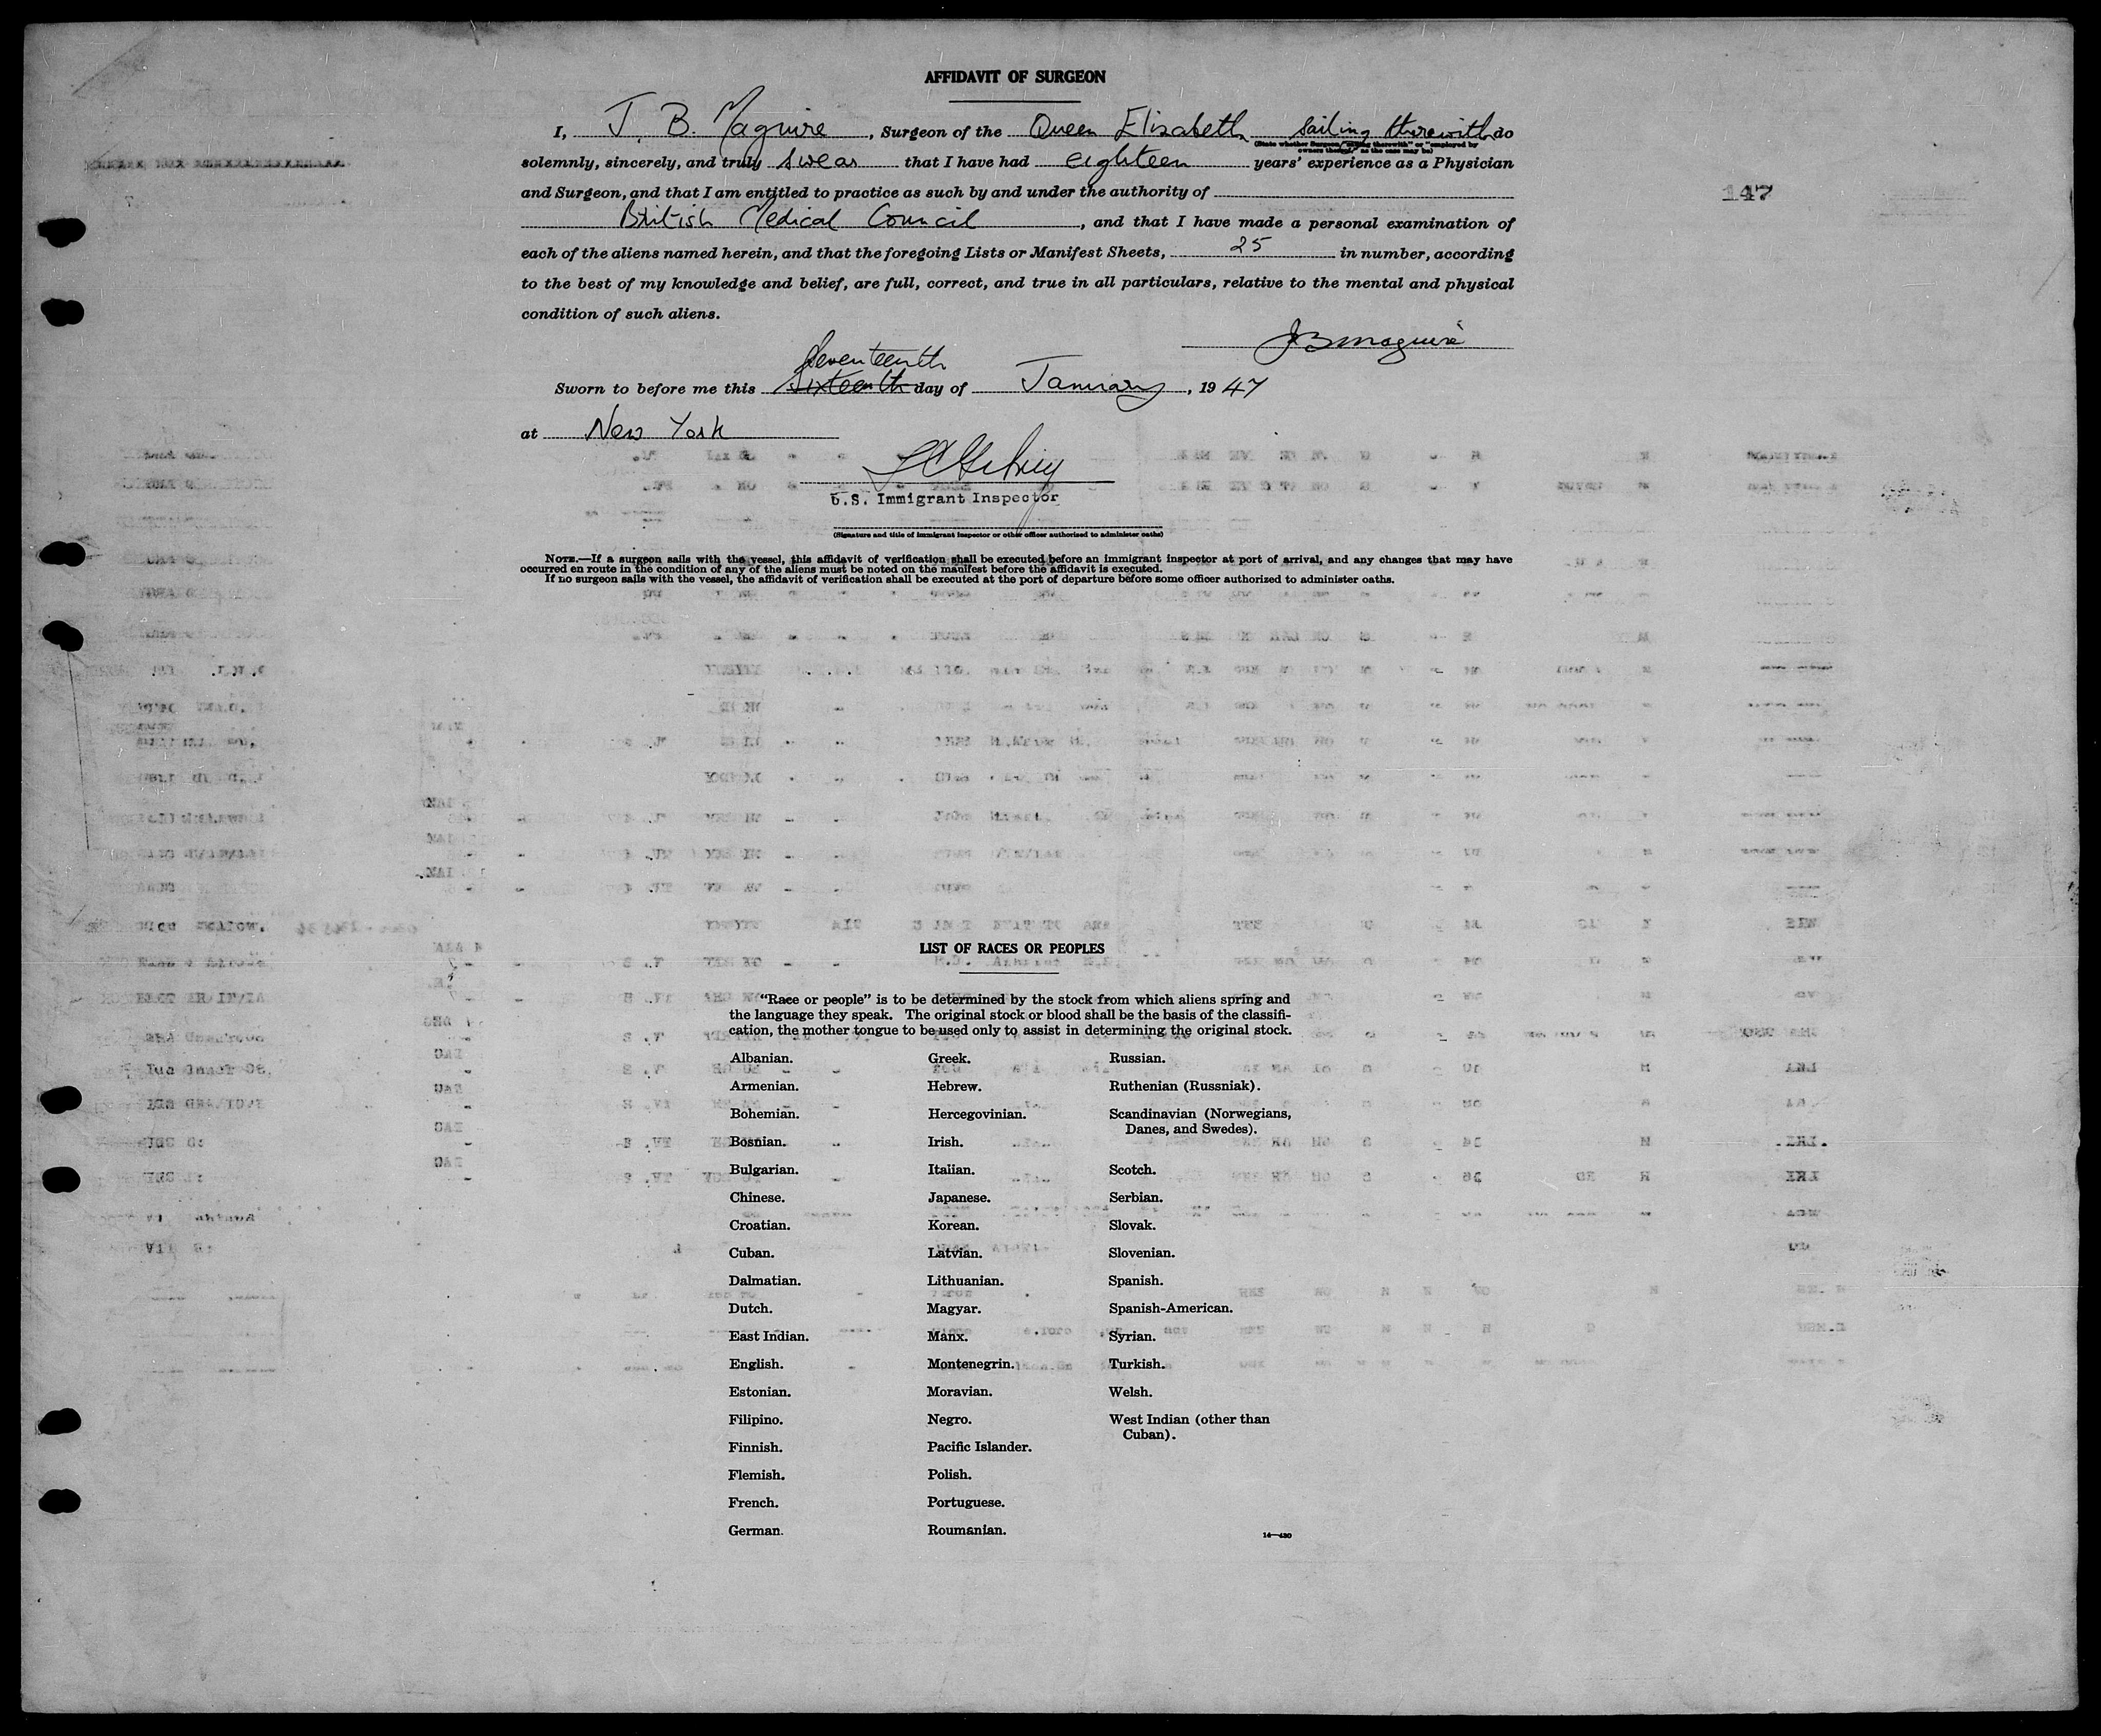 AFFIDAVIT OF SURGEON
I, J. B. Maguire, Surgeon of the Queen Elizabeth sailing therewith do
(State whether Surgeon "sailing therewith" or "employed by
owners thereof," as the case may be)
solemnly, sincerely, and truly swear that I have had eighteen years' experience as a Physician
147
and Surgeon, and that I am entitled to practice as such by and under the authority of
British Medical Council, and that I have made a personal examination of
each of the aliens named herein, and that the foregoing Lists or Manifest Sheets, 25 in number, according
to the best of my knowledge and belief, are full, correct, and true in all particulars, relative to the mental and physical
condition of such aliens.
J B Maguire
Seventeenth
Sworn to before me this Sixteenth day of January, 1947
at New York
U.S. Immigrant Inspector
(Signature and title of immigrant inspector or other officer authorized to administer oaths)
NOTE.—If a surgeon sails with the vessel, this affidavit of verification shall be executed before an immigrant inspector at port of arrival, and any changes that may have
occurred en route in the condition of any of the aliens must be noted on the manifest before the affidavit is executed.
If no surgeon sails with the vessel, the affidavit of verification shall be executed at the port of departure before some officer authorized to administer oaths.
LIST OF RACES OR PEOPLES
"Race or people" is to be determined by the stock from which aliens spring and
the language they speak. The original stock or blood shall be the basis of the classifi-
cation, the mother tongue to be used only to assist in determining the original stock.
Albanian.
Armenian.
Bohemian.
Bosnian.
Bulgarian.
Chinese.
Croatian.
Cuban.
Dalmatian.
Dutch.
East Indian.
English.
Estonian.
Filipino.
Finnish.
Flemish.
French.
German.
Greek.
Hebrew.
Hercegovinian.
Irish.
Italian.
Japanese.
Korean.
Latvian.
Lithuanian.
Magyar.
Manx.
Montenegrin.
Moravian.
Negro.
Pacific Islander.
Polish.
Portuguese.
Roumanian.
Russian.
Ruthenian (Russniak).
Scandinavian (Norwegians,
Danes, and Swedes).
Scotch.
Serbian.
Slovak.
Slovenian.
Spanish.
Spanish-American.
Syrian.
Turkish.
Welsh.
West Indian (other than
Cuban).
14—430